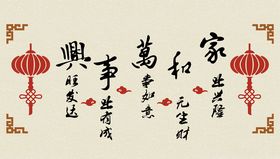 家业兴隆
和气生财
萬事如意
事业有成
興旺发达